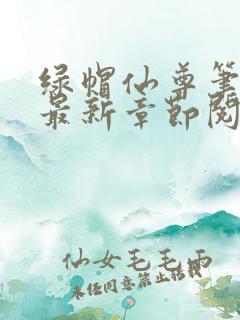 绿帽仙尊笔
最新章节阅
仙女毛毛雨
未经同意禁止转载